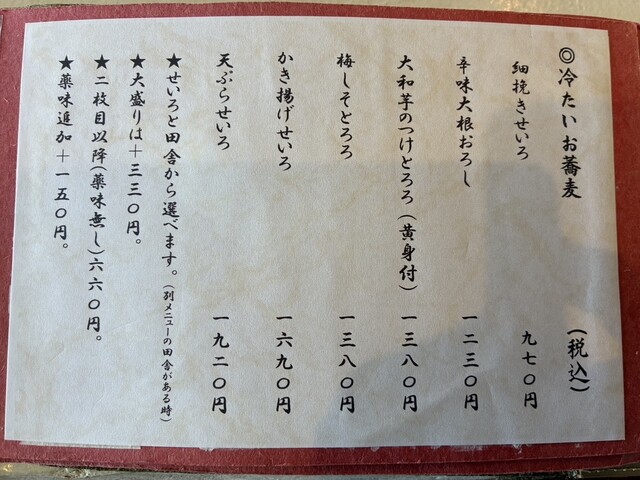 ◎冷たいお蕎麦 (税込)
細挽きせいろ 九七〇円
辛味大根おろし 一二三〇円
大和芋のつけとろろ(黄身付) 一三八〇円
梅しそとろろ 一三八〇円
かき揚げせいろ 一六九〇円
天ぷらせいろ 一九二〇円
★せいろと田舎から選べます。(別メニューの田舎がある時)
★大盛りは+三三〇円。
★二枚目以降(薬味無し)六六〇円。
★薬味追加+一五〇円。